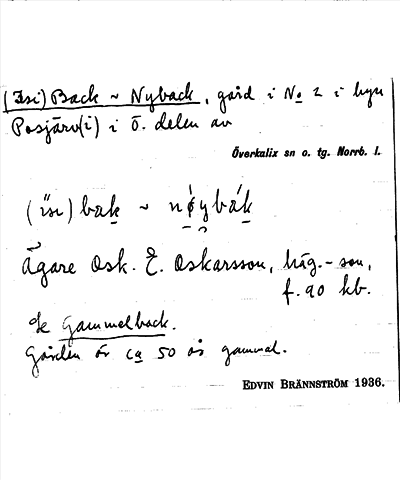 (Isi) Back ~ Nyback, gård i No 2 i byn
Posjärv(i) i Ö. delen av
Överkalix sn o. tg. Norrb. l.
(īsi) bak ~ nøybák
Ägare Osk. E. Oskarsson, häg.-son,
f. 90 kb.
Jfr Gammelback.
Gården är ca 50 år gammal.
EDVIN BRÄNNSTRÖM 1936.